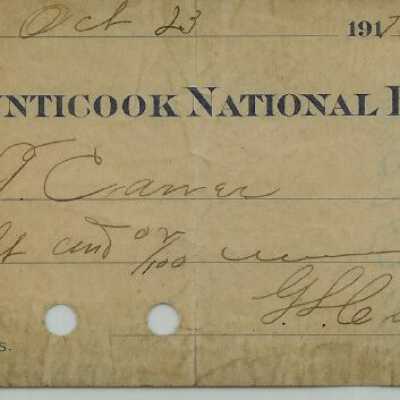 Oct 23 1917
NTICOOK NATIONAL
T. Cramer
and 02/100
G. S. C
s.